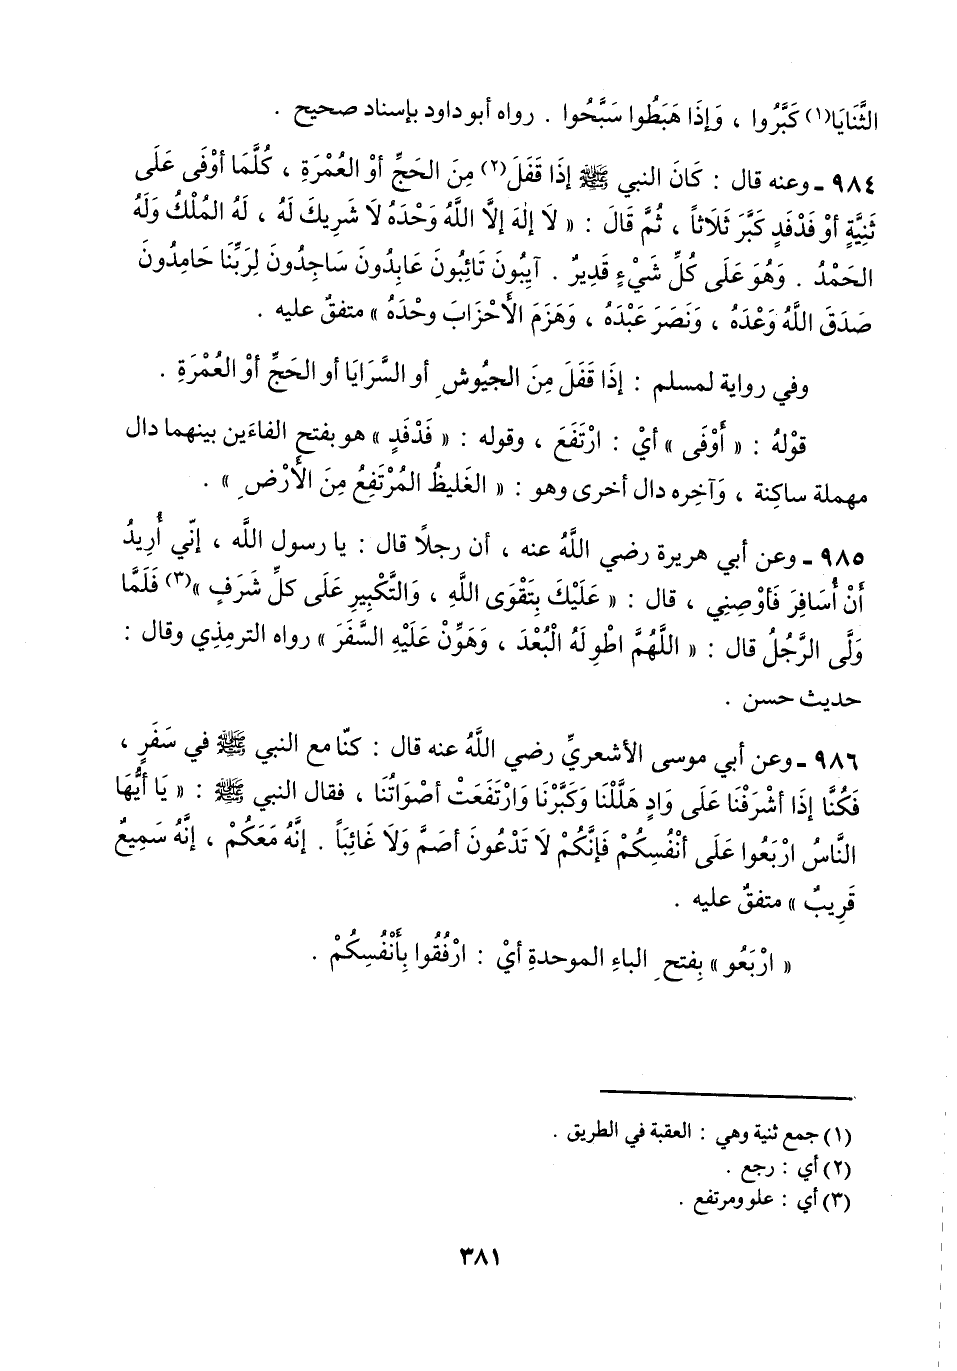 الثَّنَايَا(١) كَبَّرُوا ، وَإِذَا هَبَطُوا سَبَّحُوا . رواه أبو داود بإسناد صحيح .
٩٨٤ ـ وعنه قال : كَانَ النبي ﷺ إذَا قَفَلَ(٢) مِنَ الحَجِّ أوْ العُمْرَةِ ، كُلَّمَا أوْفَى عَلَى
ثَنِيَّةٍ أوْ فَدْفَدٍ كَبَّرَ ثَلاثاً ، ثُمَّ قَالَ : « لَا إلٰهَ إلَّا اللَّهُ وَحْدَهُ لَا شَرِيكَ لَهُ ، لَهُ المُلْكُ وَلَهُ
الحَمْدُ . وَهُوَ عَلَى كُلِّ شَيْءٍ قَدِيرٌ . آيِبُونَ تَائِبُونَ عَابِدُونَ سَاجِدُونَ لِرَبِّنَا حَامِدُونَ
صَدَقَ اللَّهُ وَعْدَهُ ، وَنَصَرَ عَبْدَهُ ، وَهَزَمَ الأَحْزَابَ وحْدَهُ » متفقٌ عليه .
وفي رواية لمسلم : إذَا قَفَلَ مِنَ الجيُوشِ أو السَّرَايَا أو الحَجِّ أوْ العُمْرَةِ .
قوْلهُ : « أَوْفَى » أيْ : ارْتَفَعَ ، وقوله : « فَدْفَدٍ » هو بفتح الفاءَين بينهما دال
مهملة ساكِنة ، وَآخِره دال أخرى وهو : « الغَليظُ المُرْتَفِعُ مِنَ الأَرْضِ » .
٩٨٥ ـ وعن أبي هريرة رضي اللَّهُ عنه ، أن رجلاً قال : يا رسول اللَّه ، إنّي أُرِيدُ
أَنْ أُسَافِرَ فَأوْصِنِي ، قال : « عَلَيْكَ بِتَقْوَى اللَّهِ ، وَالتَّكْبِيرِ عَلَى كلِّ شَرَفٍ »(٣) فَلَمَّا
وَلَّى الرَّجُلُ قال : « اللَّهُمَّ اطْوِ لَهُ الْبُعْدَ ، وَهَوِّنْ عَلَيْهِ السَّفَرَ » رواه الترمِذِي وقال :
حديث حسن .
٩٨٦ ـ وعن أبي موسى الأشعريِّ رضي اللَّهُ عنه قال : كنّا مع النبي ﷺ في سَفَرٍ ،
فَكُنَّا إذَا أشْرَفْنَا عَلَى وَادٍ هَلَّلْنَا وَكَبَّرْنَا وَارْتَفَعَتْ أصْوَاتُنَا ، فقال النبي ﷺ : « يَا أيُّهَا
النَّاسُ ارْبَعُوا عَلَى أنْفُسِكُمْ فَإِنَّكُمْ لَا تَدْعُونَ أصَمَّ وَلَا غَائِبَاً . إنَّهُ مَعَكُمْ ، إنَّهُ سَمِيعٌ
قَرِيبٌ » متفقٌ عليه .
« ارْبَعُو » بِفتحِ الباءِ الموحدةِ أيْ : ارْفُقُوا بِأَنْفُسِكُمْ .
(١) جمع ثنية وهي : العقبة في الطريق .
(٢) أي : رجع .
(٣) أي : علو ومرتفع .
٣٨١